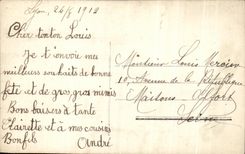 Lyon, 26/8 1912
Cher tonton Louis
Je t'envoie mes
meilleurs souhaits de bonne
fête et de gros, gros mimis
Bons baisers à tante
Clairette et a mes cousins
Bonfils
André
Monsieur Louis Mercier
10, Avenue de la République
Maisons Alfort
Seine